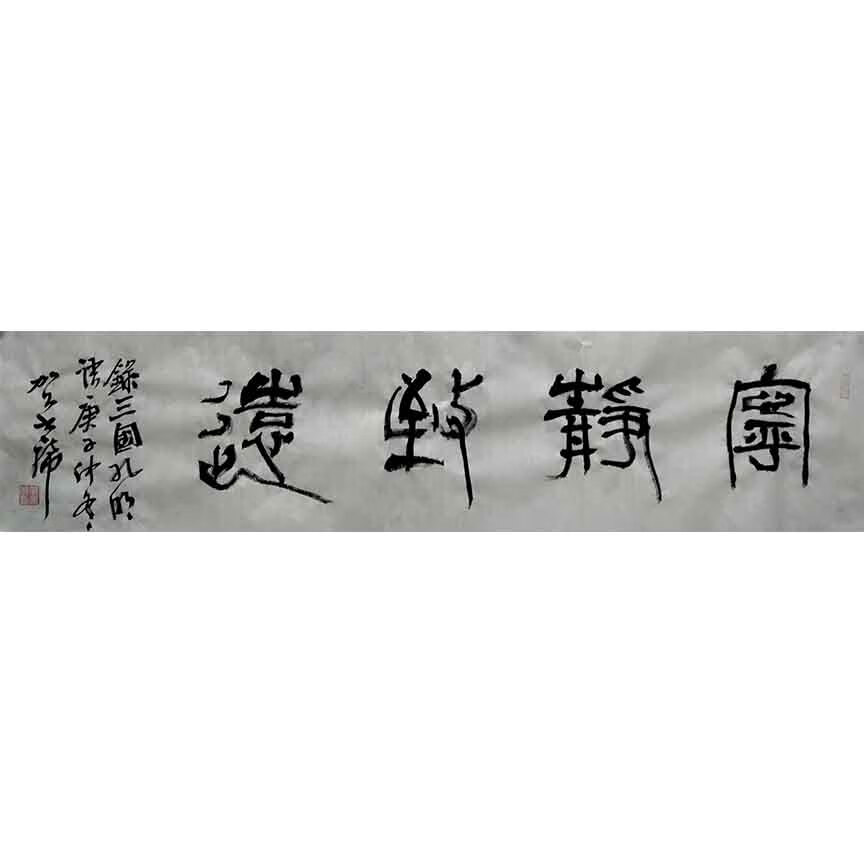 寧靜致遠
錄三國孔明
語庚子仲冬
賀